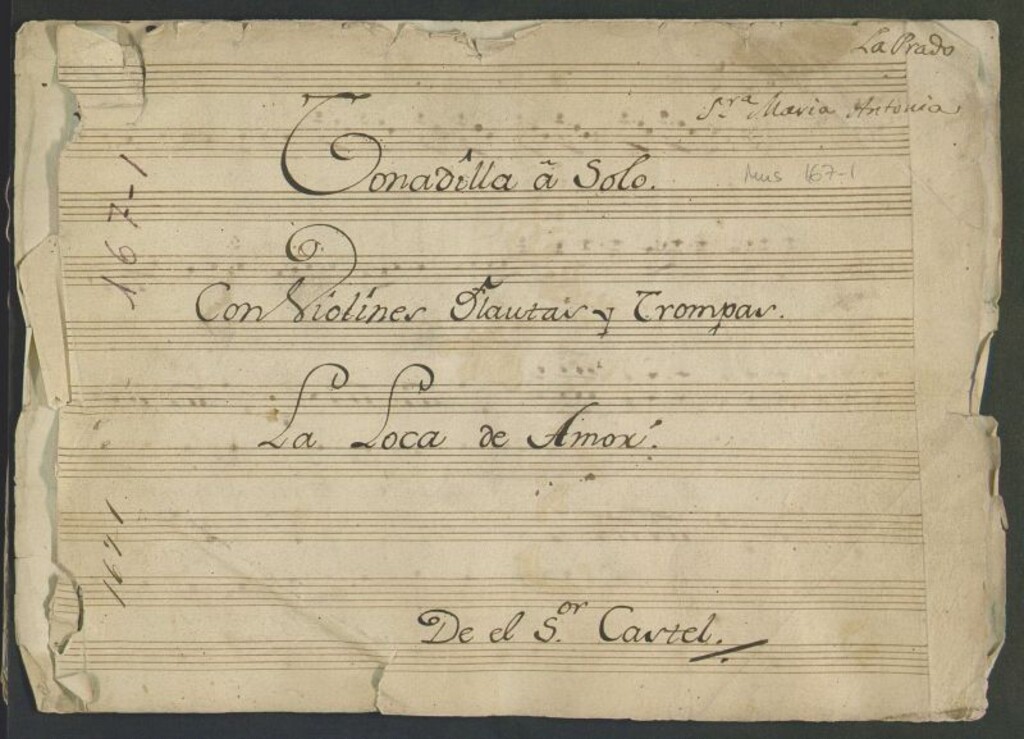 La Prado
S.ra Maria Antonia
Tonadilla â Solo.
Mus 167-1
167-1
Con Violines Flautas y Trompas.
La Loca de Amor.
167-1
De el S.or Castel.